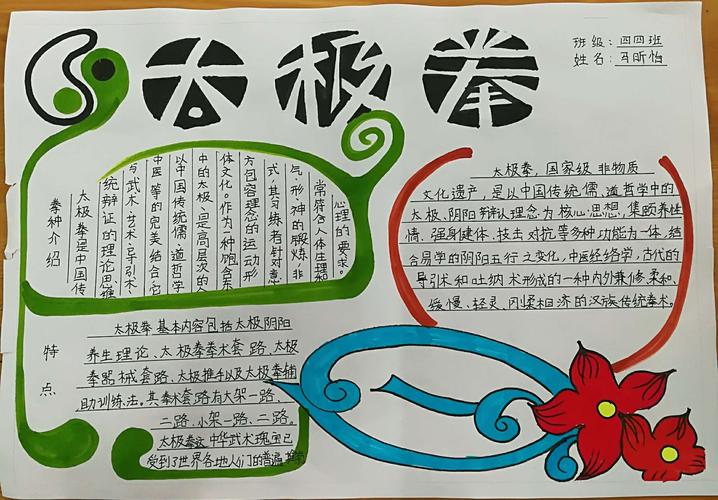 太极拳
班级:四四班
姓名:马昕怡
拳种介绍
太极拳是中国传
统辩证的理论思维
与武术、艺术、导引术、
中医等的完美结合,它
以中国传统儒、道哲学
中的太极、是高层次的人
体文化。作为一种饱含东
方包容理念的运动形
式,其习练者针对意、
气、形、神的锻炼,非
常符合人体生理和
心理的要求。
太极拳,国家级非物质
文化遗产,是以中国传统儒、道哲学中的
太极、阴阳辩认理念为核心思想,集颐养性
情、强身健体、技击对抗等多种功能为一体,结
合易学的阴阳五行之变化,中医经络学,古代的
导引术和吐纳术形成的一种内外兼修、柔和、
缓慢、轻灵、刚柔相济的汉族传统拳术。
特点
太极拳基本内容包括太极阴阳
养生理论、太极拳拳术套路、太极
拳器械套路、太极推手以及太极拳辅
助训练法。其拳术套路有大架一路、
二路、小架一路、二路。
太极拳这中华武术瑰宝已
受到了世界各地人们的普遍